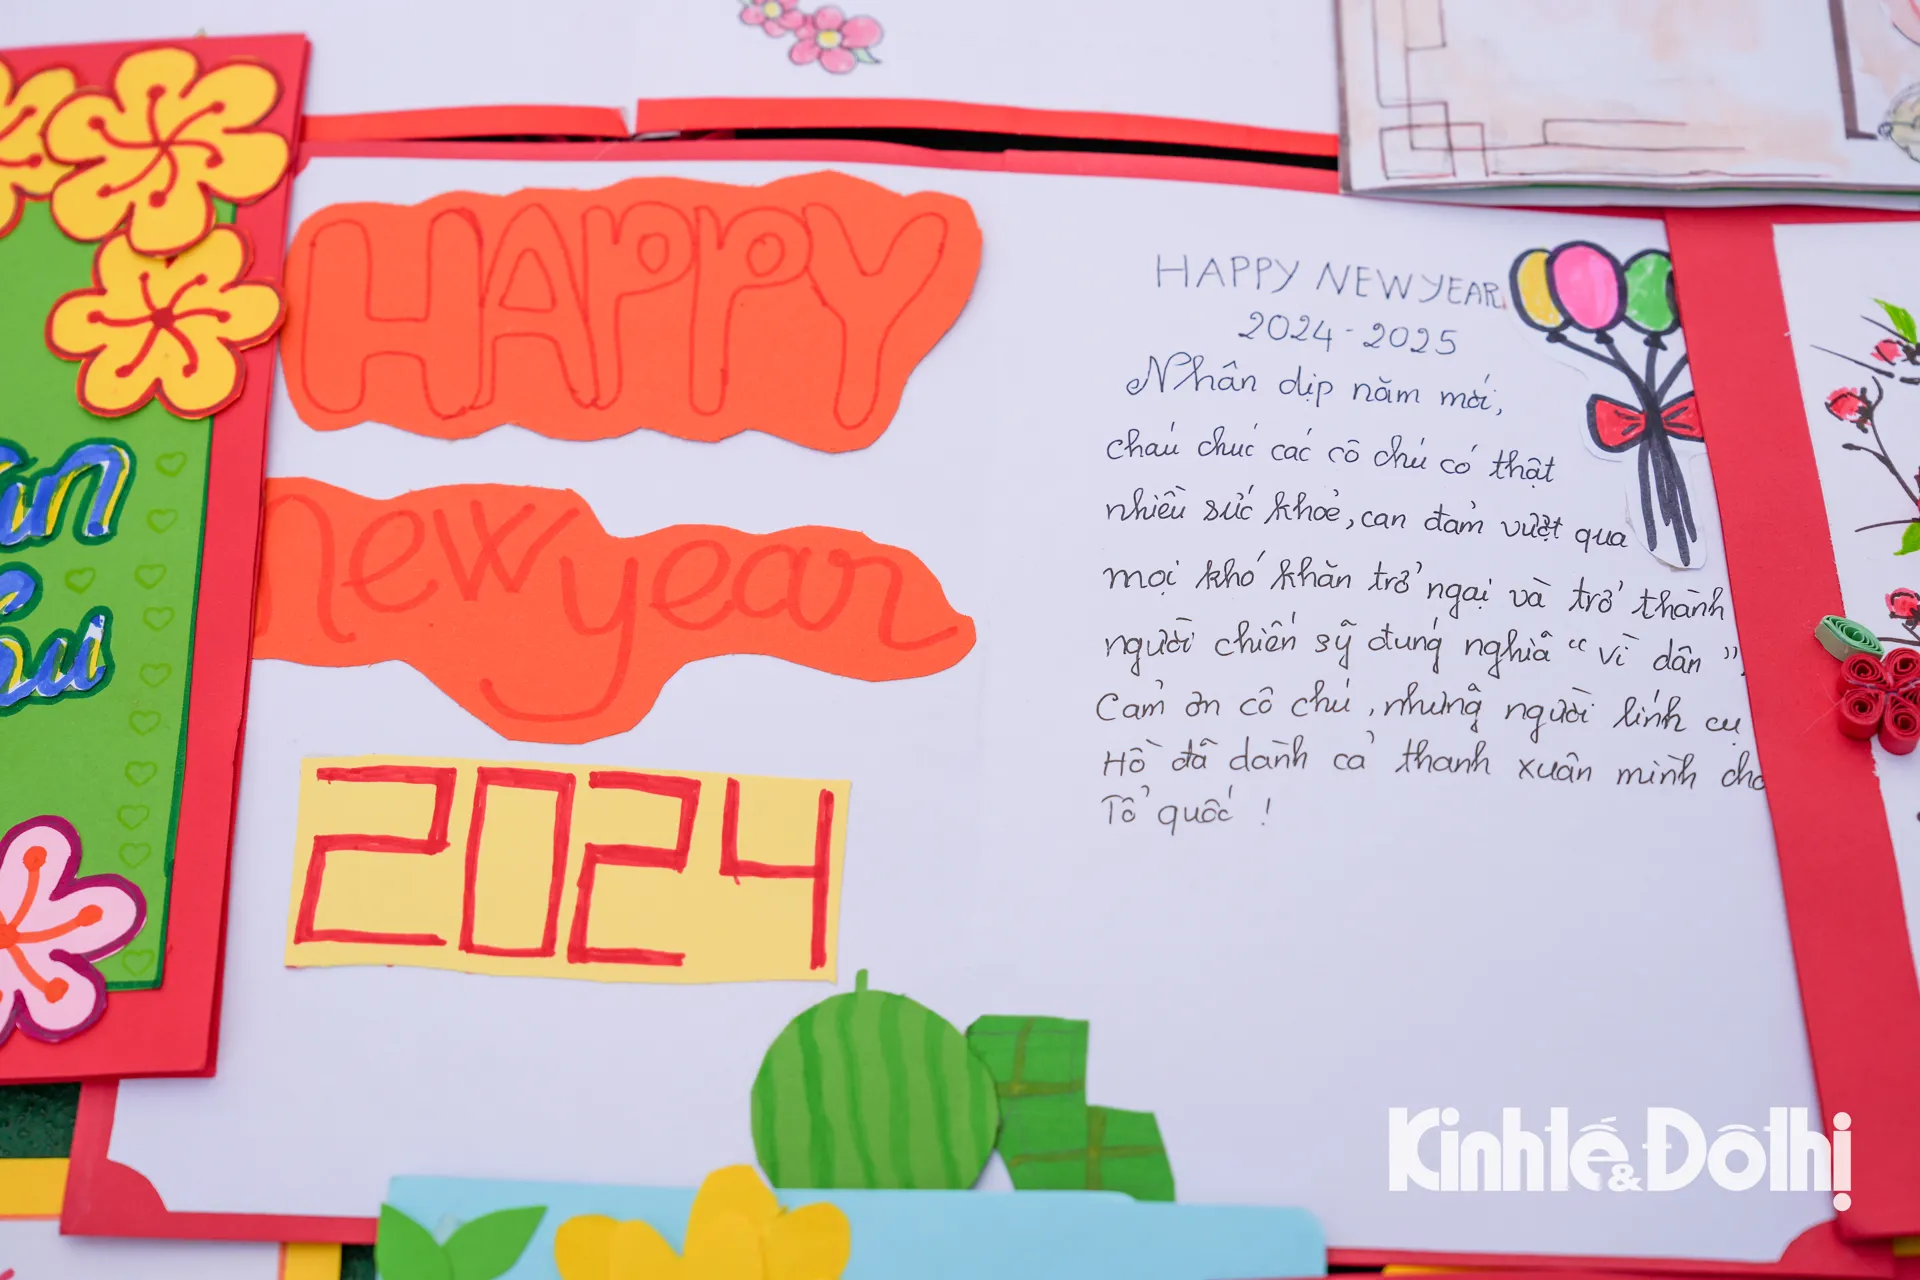 HAPPY
new year
2024
HAPPY NEW YEAR
2024-2025
Nhân dịp năm mới,
cháu chúc các cô chú có thật
nhiều sức khoẻ, can đảm vượt qua
mọi khó khăn trở ngại và trở thành
người chiến sỹ đúng nghĩa "vì dân".
Cảm ơn cô chú, những người lính cụ
Hồ đã dành cả thanh xuân mình cho
Tổ quốc!
Kinh tế & Đô thị